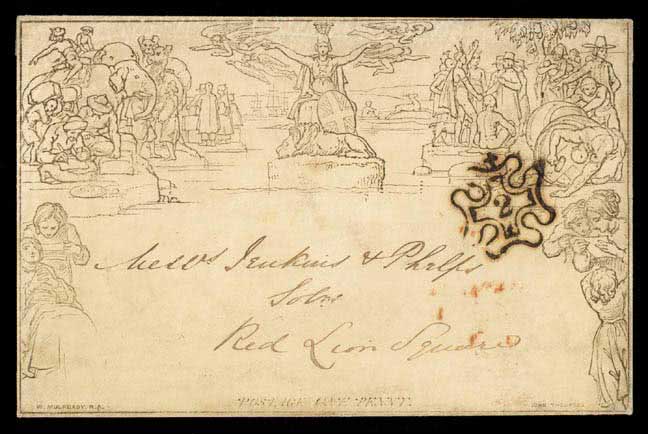 2
Messrs Jenkins & Phelps
Solrs
Red Lion Square
POSTAGE ONE PENNY.
W. MULREADY. R.A.
JOHN THOMPSON